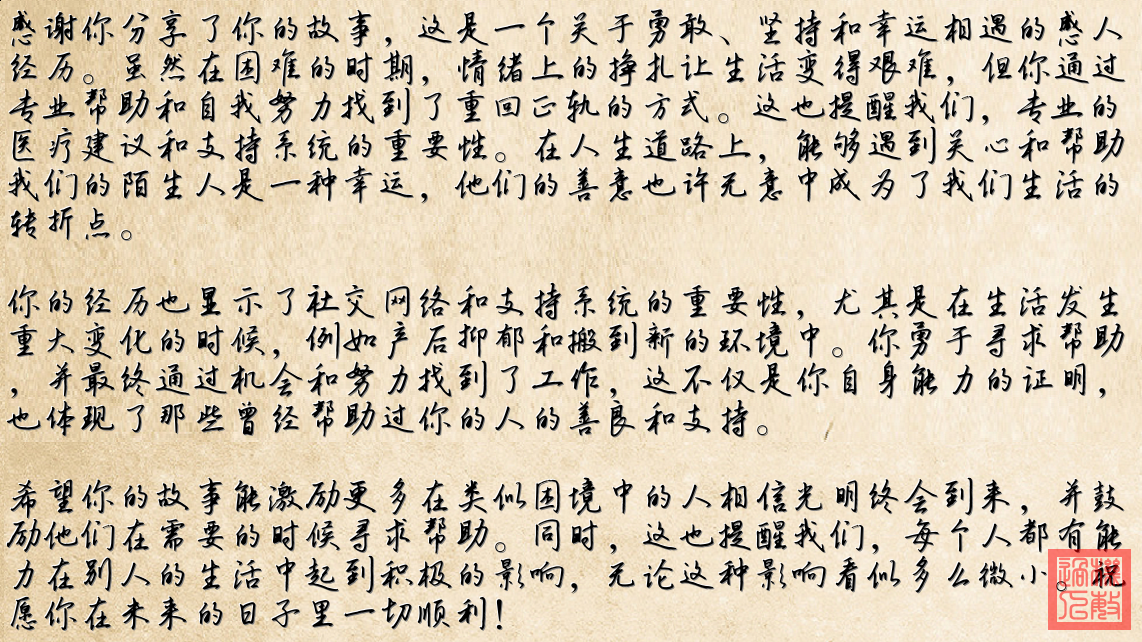 感谢你分享了你的故事，这是一个关于勇敢、坚持和幸运相遇的感人
经历。虽然在困难的时期，情绪上的挣扎让生活变得艰难，但你通过
专业帮助和自我努力找到了重回正轨的方式。这也提醒我们，专业的
医疗建议和支持系统的重要性。在人生道路上，能够遇到关心和帮助
我们的陌生人是一种幸运，他们的善意也许无意中成为了我们生活的
转折点。
你的经历也显示了社交网络和支持系统的重要性，尤其是在生活发生
重大变化的时候，例如产后抑郁和搬到新的环境中。你勇于寻求帮助
，并最终通过机会和努力找到了工作，这不仅是你自身能力的证明，
也体现了那些曾经帮助过你的人的善良和支持。
希望你的故事能激励更多在类似困境中的人相信光明终会到来，并鼓
励他们在需要的时候寻求帮助。同时，这也提醒我们，每个人都有能
力在别人的生活中起到积极的影响，无论这种影响看似多么微小。祝
愿你在未来的日子里一切顺利！